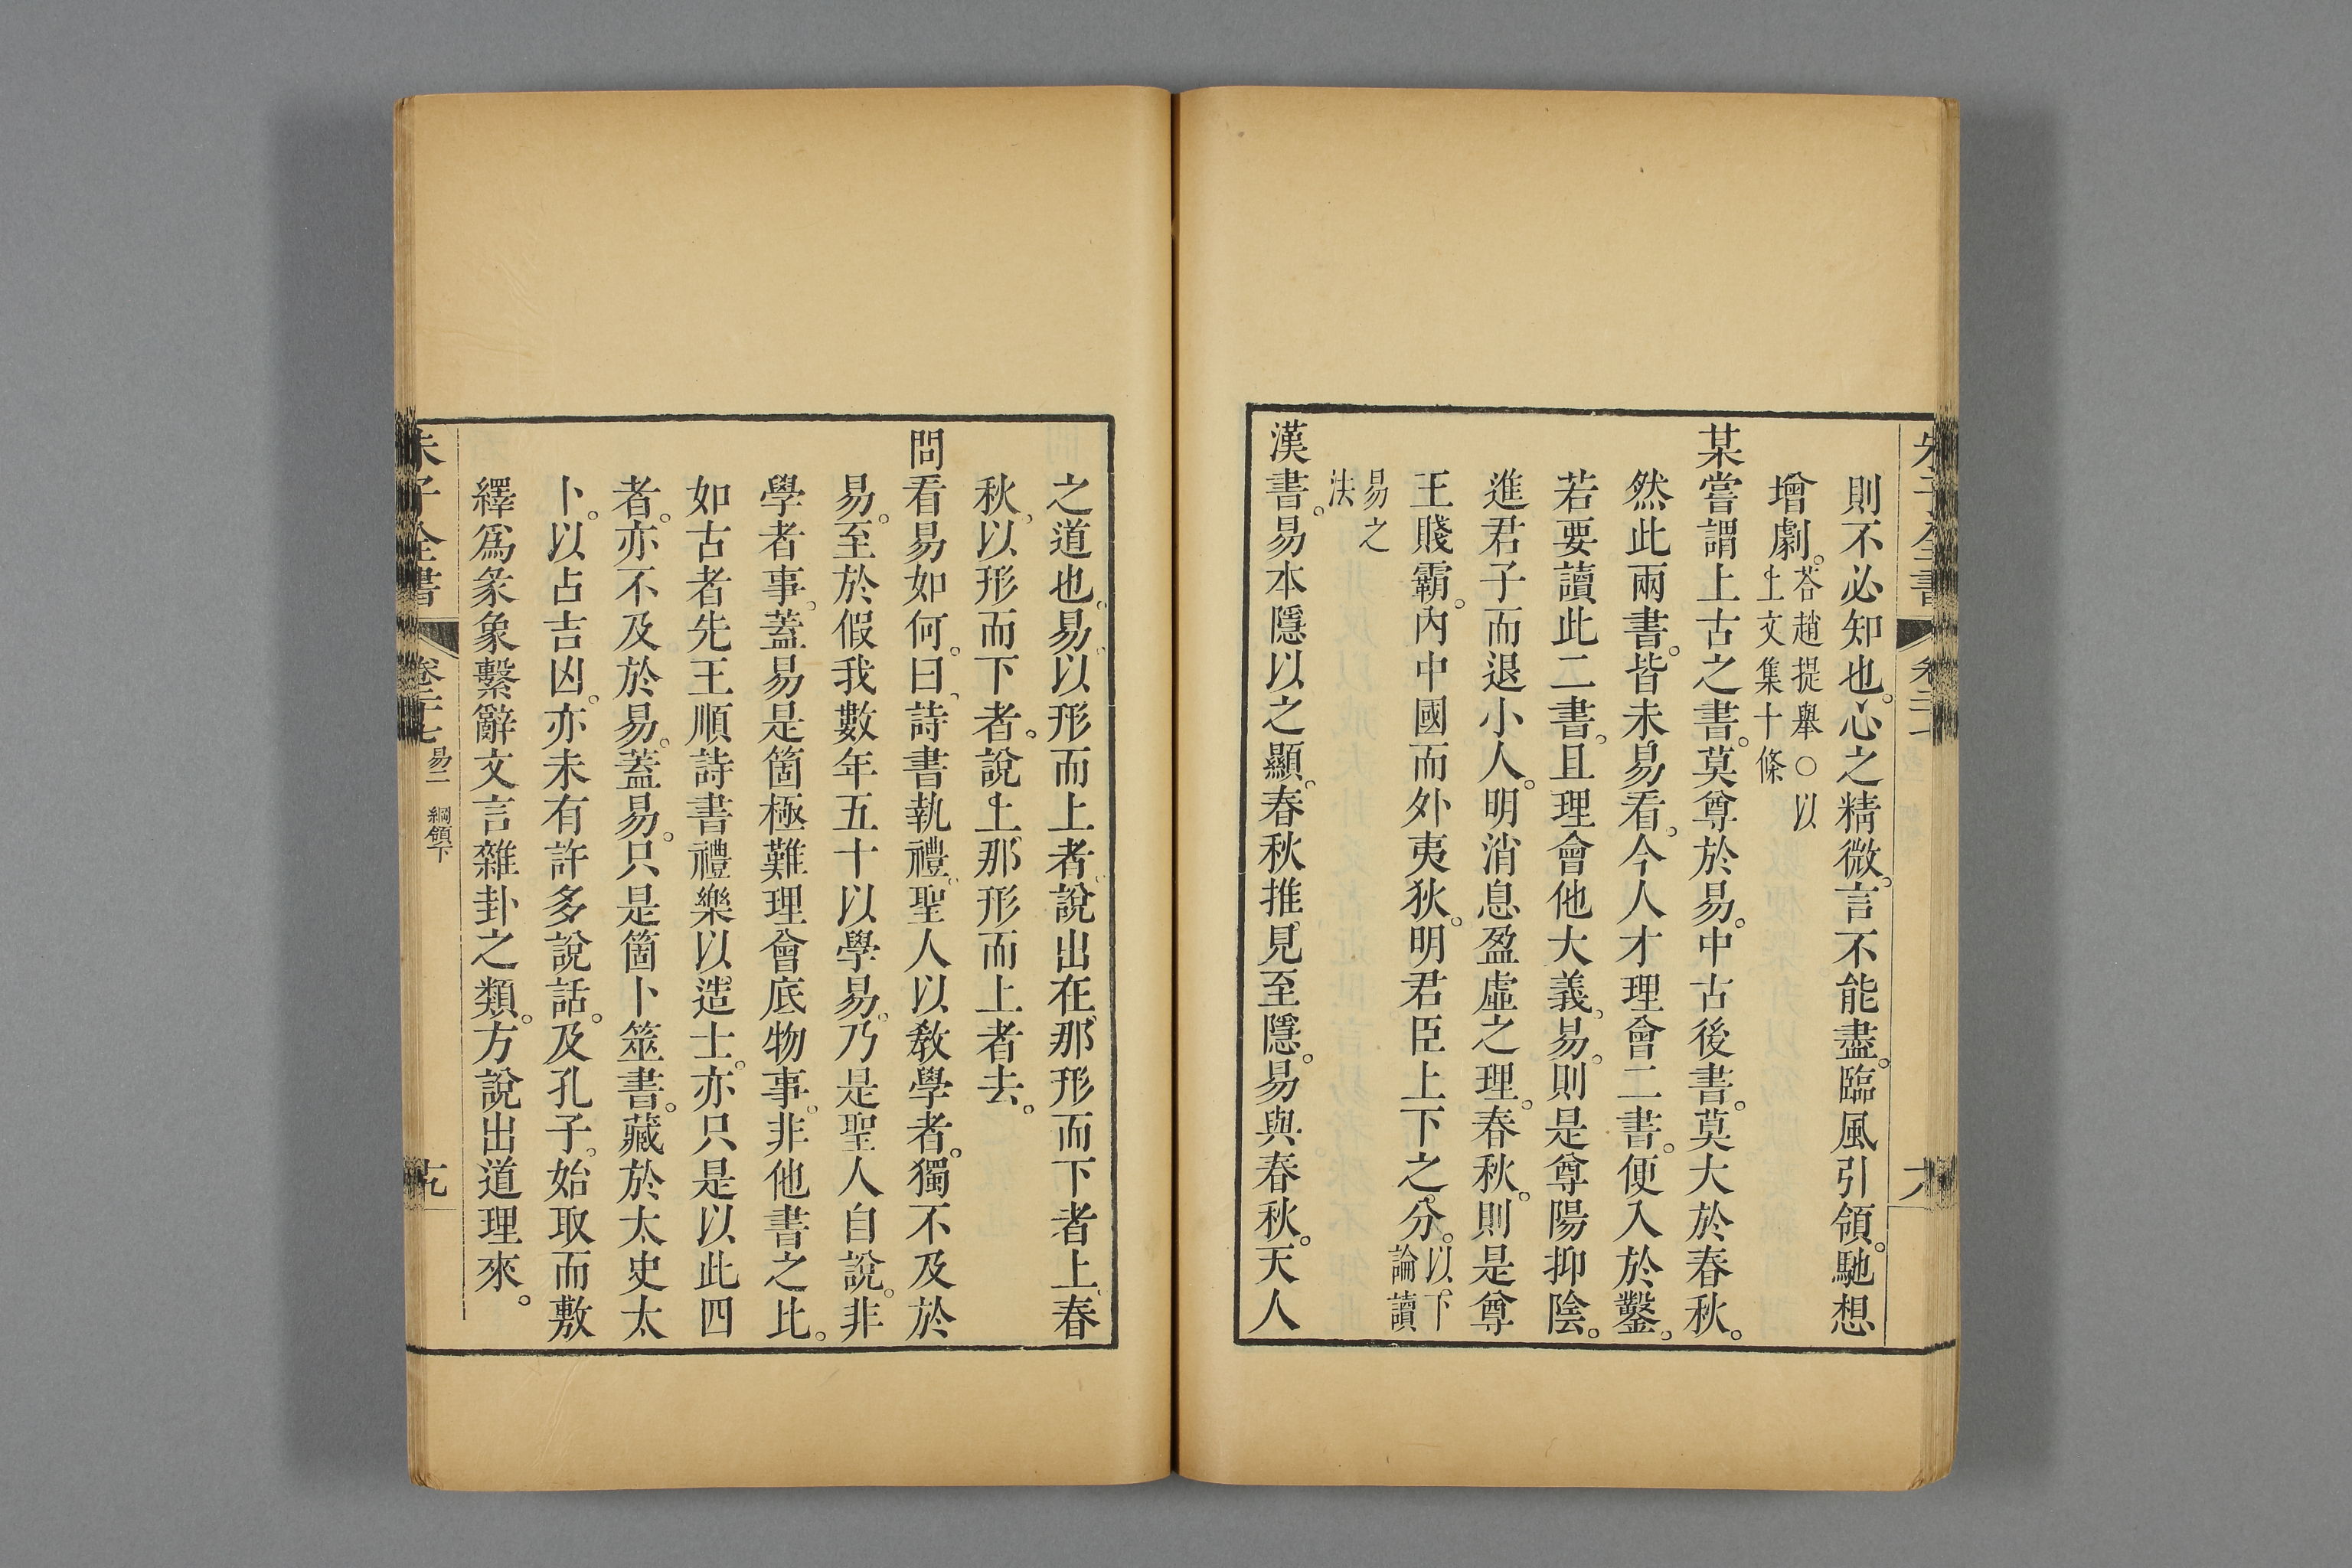 則不必知也。心之精微。言不能盡。臨風引領。馳想
增劇。荅趙提舉○以上文集十條
某嘗謂上古之書。莫尊於易。中古後書。莫大於春秋。
然此兩書。皆未易看。今人才理會二書。便入於鑿。
若要讀此二書。且理會他大義。易。則是尊陽抑陰。
進君子而退小人。明消息盈虛之理。春秋。則是尊
王賤霸。內中國而外夷狄。明君臣上下之分。以下論讀
易之法
漢書。易本隱以之顯。春秋推見至隱。易與春秋。天人
之道也。易以形而上者。說出在那形而下者上。春
秋以形而下者。說上那形而上者去。
問看易如何。曰、詩書執禮。聖人以敎學者。獨不及於
易。至於假我數年五十以學易。乃是聖人自說。非
學者事。蓋易是箇極難理會底物事。非他書之比。
如古者先王順詩書禮樂以造士。亦只是以此四
者。亦不及於易。蓋易。只是箇卜筮書。藏於太史太
卜。以占吉凶。亦未有許多說話。及孔子。始取而敷
繹爲彖象繫辭文言雜卦之類。方說出道理來。
朱子全書 卷二十七 易二 綱領下